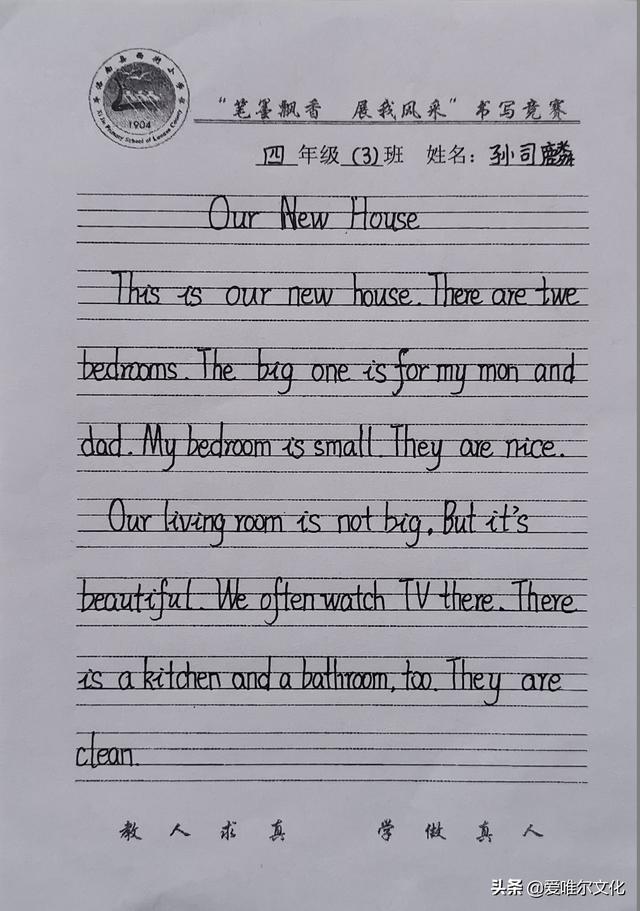 1904
Xi Jie Primary School of Luonan County
“笔墨飘香 展我风采”书写竞赛
四年级(3)班 姓名：孙司麟
Our New House
This is our new house. There are twe
bedrooms. The big one is for my mon and
dad. My bedroom is small. They are nice.
Our living room is not big. But it's
beautiful. We often watch TV there. There
is a kitchen and a bathroom, too. They are
clean.
教人求真 学做真人
头条 @爱唯尔文化